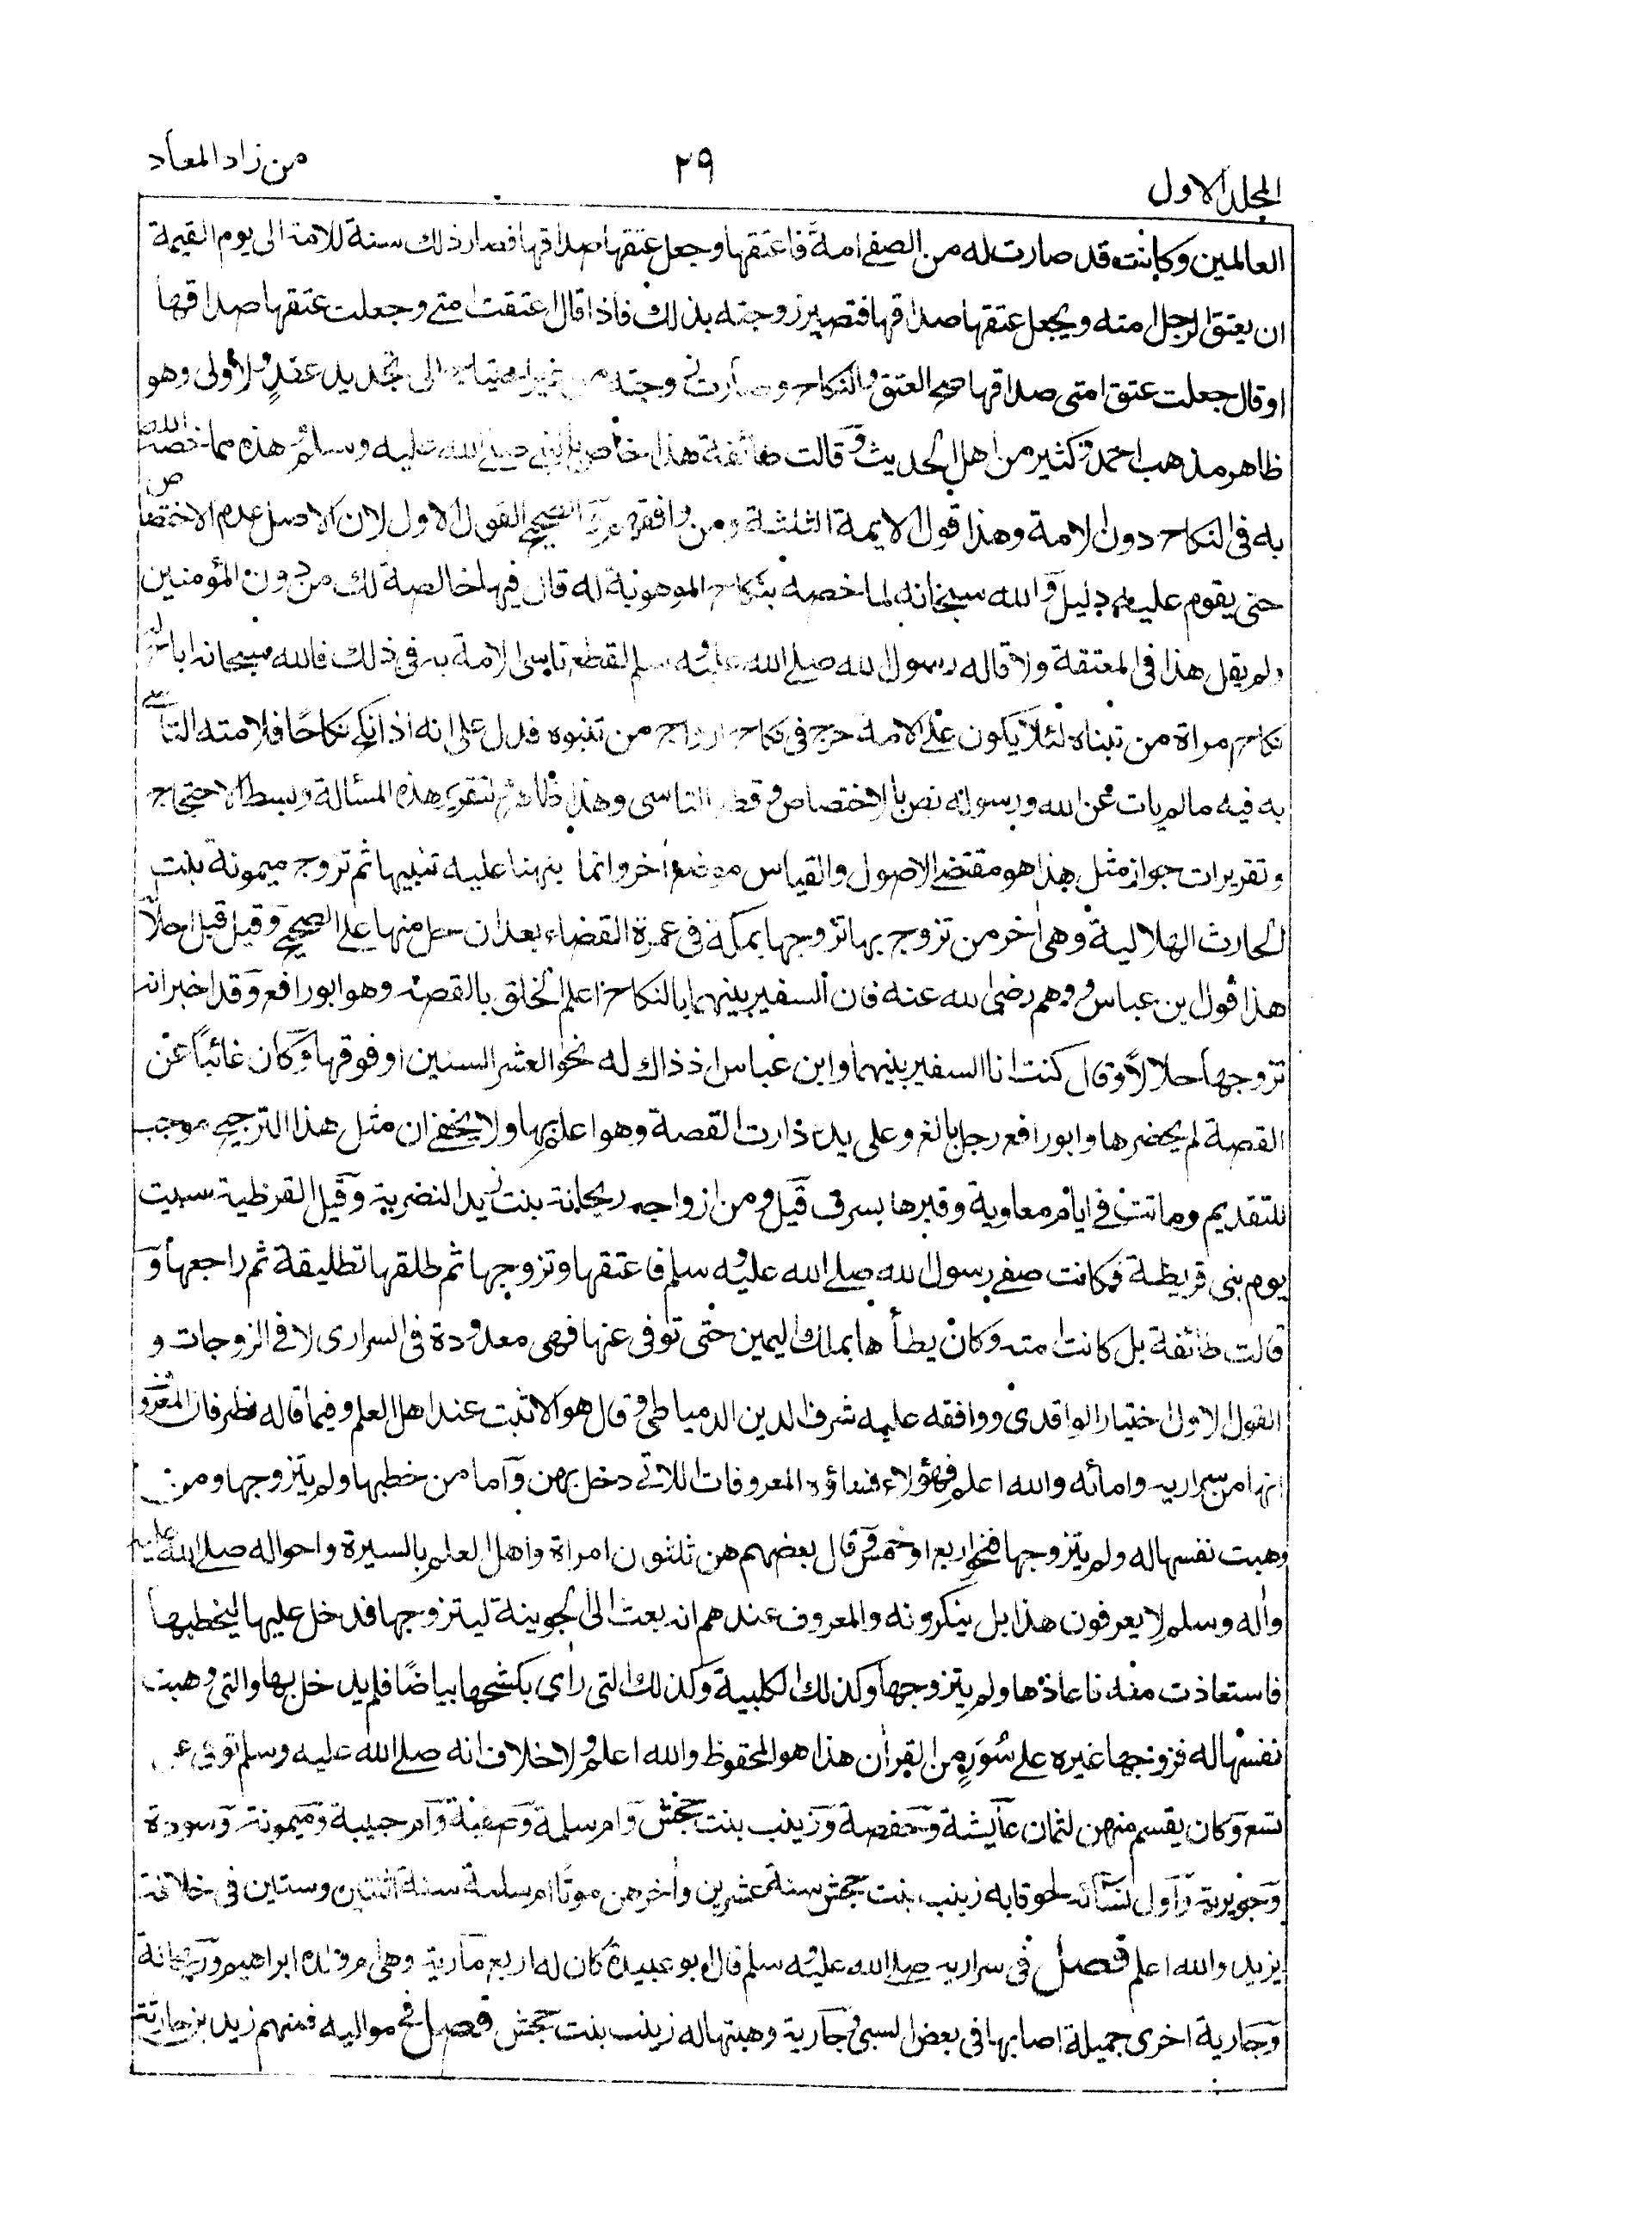 المجلد الاول
٢٩
من زاد المعاد
العالمين وكانت قد صارت له من الصفے امة فاعتقها وجعل عتقها صداقها فصار ذلك سنة للامة الى يوم القيمة
ان يعتق الرجل امته ويجعل عتقها صداقها فتصير زوجته بذلك فاذا قال اعتقت امتے وجعلت عتقها صداقها
او قال جعلت عتق امتى صداقها صح العتق والنكاح وصارت زوجته من غير احتياج الى تجديد عقد ولأولى وهو
ظاهر مذهب احمد وكثير من اهل الحديث وقالت طائفة هذا خاص بالنبى صلے الله عليه وسلم هذه مما خصه الله
به فى النكاح دون الامة وهذا قول الايمة الثلثة ومن وافقهم والصحيح القول الاول لان الاصل عدم الاختصاص
حتى يقوم عليه دليل والله سبحانه لما خصه بنكاح الموهوبة له قال فيها خالصة لك من دون المؤمنين
ولم يقل هذا فى المعتقة ولا قاله رسول الله صلے الله عليه وسلم لقطع تاسى الامة به فى ذلك فالله سبحانه اباح له
نكاح مراة من تبناه لئلا يكون علے الامة حرج فى نكاح ازواج من تبنوه فدل على انه اذا نكح نكاحًا فلامته التاسے
به فيه مالم يات عن الله ورسوله نص بالاختصاص وقطع التاسى وهذا ظاهر لتقرير هذه المسألة وبسط الاحتجاج
وتقريرات جواز مثل هذا هو مقتضے الاصول والقياس موضع أخر وانما ينهنا عليه تنبيها ثم تزوج ميمونة بنت
الحارث الهلالية وهى أخر من تزوج بها تزوجها بمكة فى عمرة القضاء بعد ان حل منها علے الصحيح وقيل قبل احلاله
هذا قول بن عباس ووهم رضى الله عنه فان السفير بينهما بالنكاح اعلم الخلق بالقصة وهو ابو رافع وقد اخبر انه
تزوجها حلالا وقال كنت انا السفير بينهما وابن عباس اذ ذاك له نحو العشر السنين او فوقها وكان غائبًا عن
القصة لم يحضرها وابو رافع رجل بالغ وعلى يده دارت القصة وهو اعلم بها ولا يخفے ان مثل هذا الترجيح موجب
للتقديم وماتت فے ايام معاوية وقبرها بسرف قيل ومن ازواجه ريحانة بنت زيد النضرية وقيل القرظية سبيت
يوم بنى قريظة فكانت صفے رسول الله صلے الله عليه وسلم فاعتقها وتزوجها ثم طلقها تطليقة ثم راجعها و
قالت طائفة بل كانت امته وكان يطأها بملك اليمين حتى توفى عنها فهى معدودة فى السرارى لا فے الزوجات و
القول الاول اختيار الواقدى ووافقه عليه شرف الدين الدمياطى وقال هو الاثبت عند اهل العلم وفيما قاله نظر فان المعروف
انها من سراريه وامائه والله اعلم فهؤلاء نساؤه المعروفات اللاتے دخل بهن وآما من خطبها ولم يتزوجها ومن
وهبت نفسها له ولم يتزوجها فنحو اربع او خمس وقال بعضهم هن ثلثون امراة واهل العلم بالسيرة واحواله صلے الله عليه
وأله وسلم لا يعرفون هذا بل ينكرونه والمعروف عندهم انه بعث الى الجوينة ليتزوجها فدخل عليها ليخطبها
فاستعاذت منه فاعاذها ولم يتزوجها وكذلك الكلبية وكذلك التى رأى بكشحها بياضًا فلم يدخل بها والتى وهبت
نفسها له فزوجها غيره علے سُوَرٍ من القرأن هذا هو المحفوظ والله اعلم ولا خلاف انه صلے الله عليه وسلم توفى عن
تسع وكان يقسم منهن لثمان عآيشة وحفصة وزينب بنت جحش وام سلمة وصفية وام حبيبة وميمونة وسودة
وجويرية واول نسائه لحوقا به زينب بنت جحش سنة عشرين وأخرهن موتًا ام سلمة سنة اثنتين وستين فى خلافة
يزيد والله اعلم فصل فى سراريه صلے الله عليه وسلم قال ابو عبيدة كان له اربع مارية وهى ام ولده ابراهيم وريحانة
وجارية اخرى جميلة اصابها فى بعض السبى وجارية وهبتها له زينب بنت جحش فصل فے مواليه فمنهم زيد بن حارثة